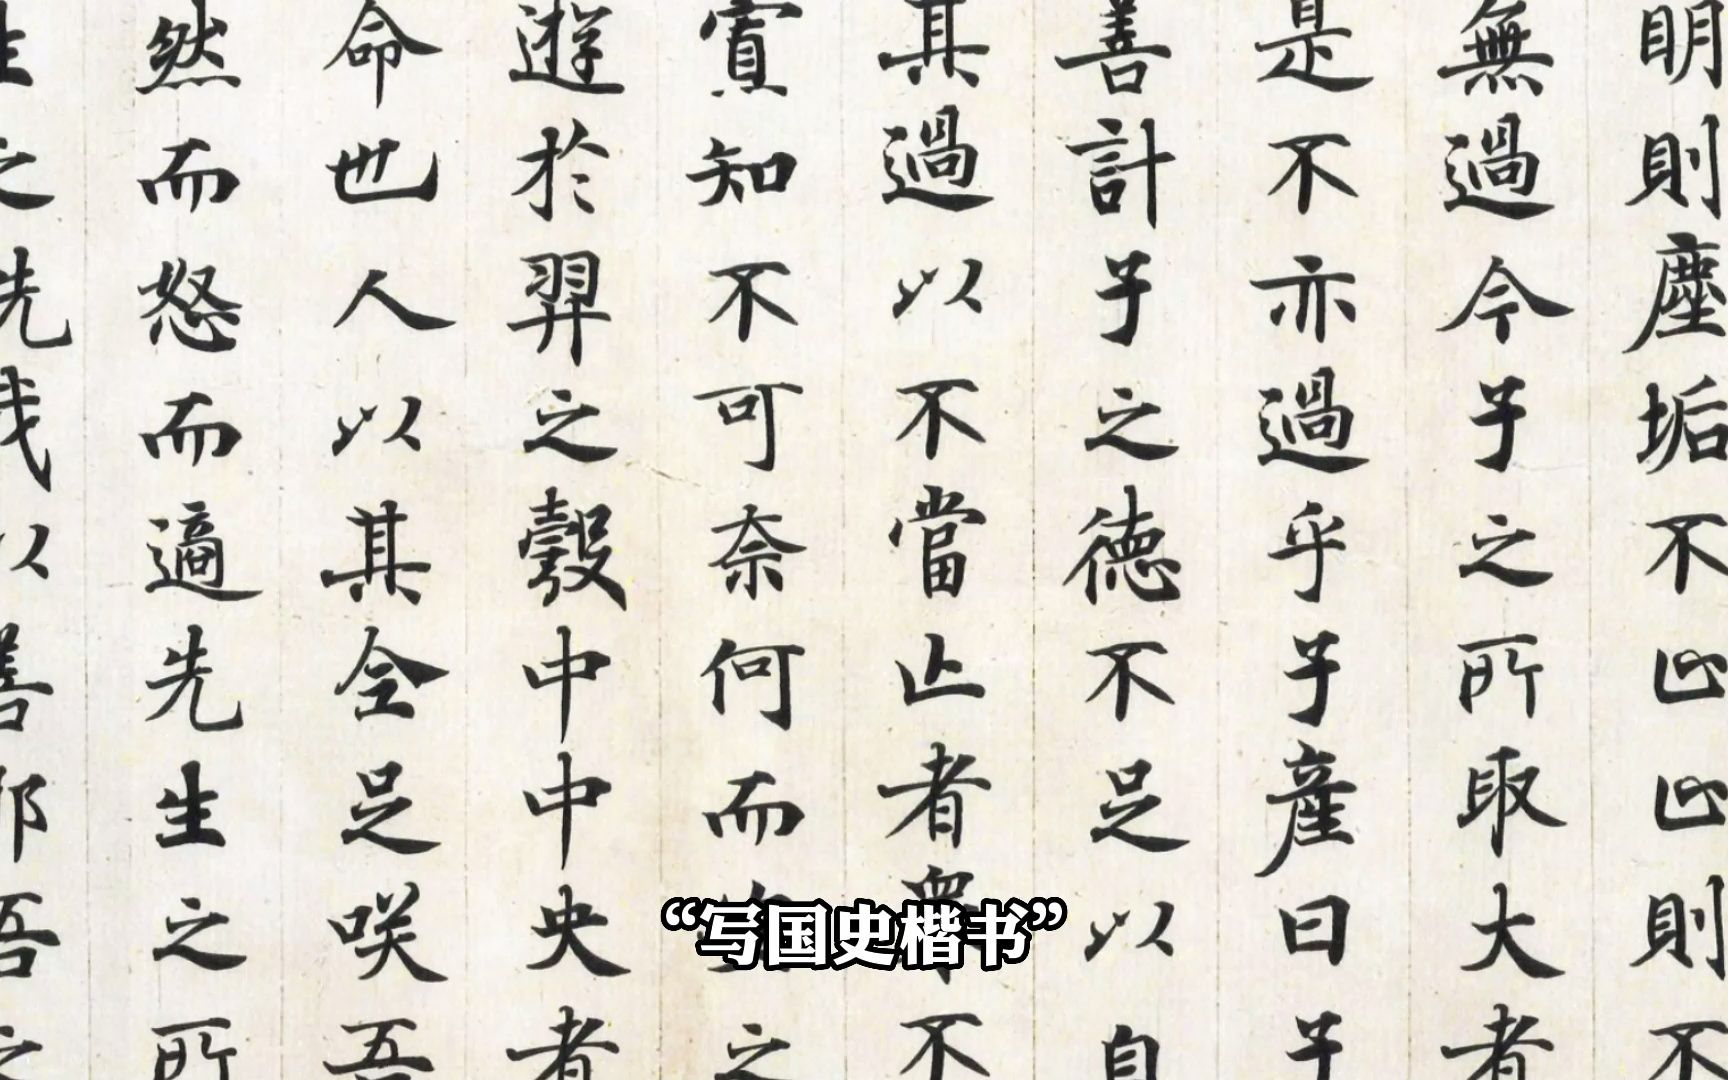 明則塵垢不止止則不
無過今子之所取大者
是不亦過乎子產曰子
善計子之德不足以自
其過以不當亾者眾不
寊知不可奈何而之
遊於羿之彀中中央者
命也人以其全足咲吾
然而怒而適先生之所
生之先我以善邪吾之
“写国史楷书”